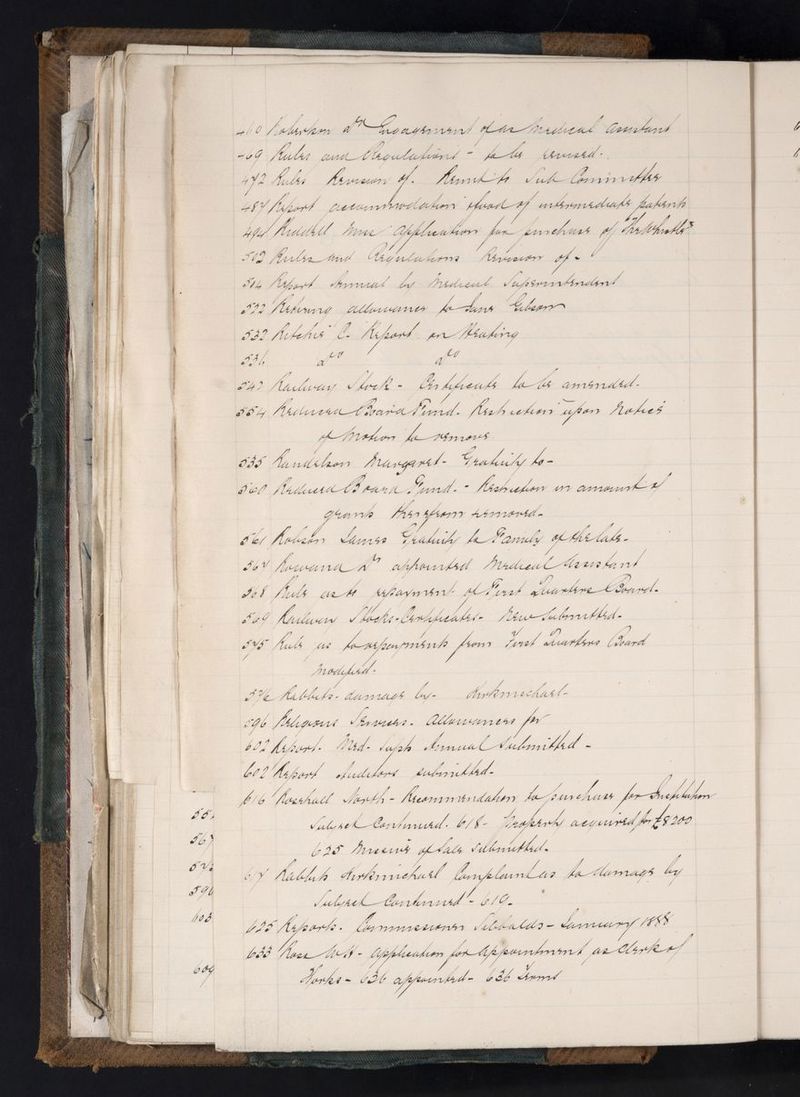 460 Robertson Dr Engagement of as Medical Assistant
469 Rules and Regulations - to be revised.
472 Rules Revision of. Remit to Sub Committee
487 Report accommodation of intermediate patients
Riddell Miss Application for purchase of
502 Rules and Regulations Revision of -
504 Report Annual by Medical Superintendent
522 Retiring allowance to Jane Gibson
532 Ritchie C. Report on Heating
536 do do
547 Railway Stock - Certificate to be amended.
554 Reduced Board Fund. Restriction upon Notice
of Motion to remove
535 Margaret - Gratuity to -
560 Reduced Board Fund. - Restriction in amount of
grants therefrom removed -
561 Robson James Gratuity to Family of the late -
564 Rowand Dr appointed Medical Assistant
568 Rule as to repayment of First Quarters Board -
569 Railway Stocks - Certificates - New Submitted -
575 Rule as to repayments from First Quarters Board
Modified -
576 Rabbits - damage by - Kirkmichael -
596 Religious Services - Allowances for
602 Report - Med. Supts Annual Submitted -
602 Report Auditors submitted -
616 Rosehall North - Recommendation to purchase for Institution
Subject Continued. 618 - Property acquired for £8200
625 Missive of Sale Submitted -
617 Rabbits Kirkmichael Complaint as to damage by
Subject Continued - 619 -
625 Reports - Commissioner Sibbalds - January 1888
633 Ross W.H - Application for Appointment as Clerk of
Works - 636 appointed - 636 Terms
567
590
603
609